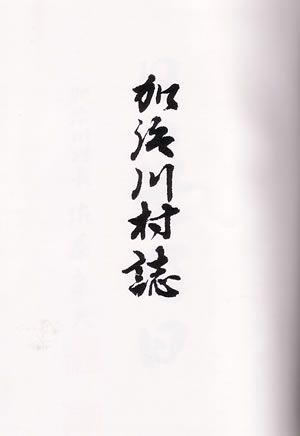 加治川村誌